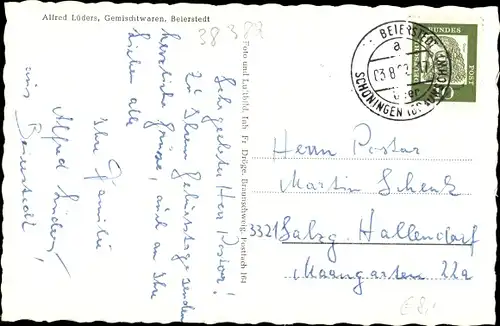 Alfred Lüders, Gemischtwaren, Beierstedt
38 388
Sehr geehrter Herr Pastor!
Zu Ihrem Geburtstage senden
herzliche Grüße, auch an Ihre
Lieben alle
Ihre Familie
Alfred Lüders,
aus Beierstedt!
Foto und Luftbild, Inh. Fr. Dröge, Braunschweig, Postfach 164
BEIERSTEDT
a
03.8
über
SCHÖNINGEN
DEUTSCHE BUNDES
POST
Herrn Pastor
Martin Schenk
3321 Salzg. Hallendorf
Maangarten 22a
€ 8,-